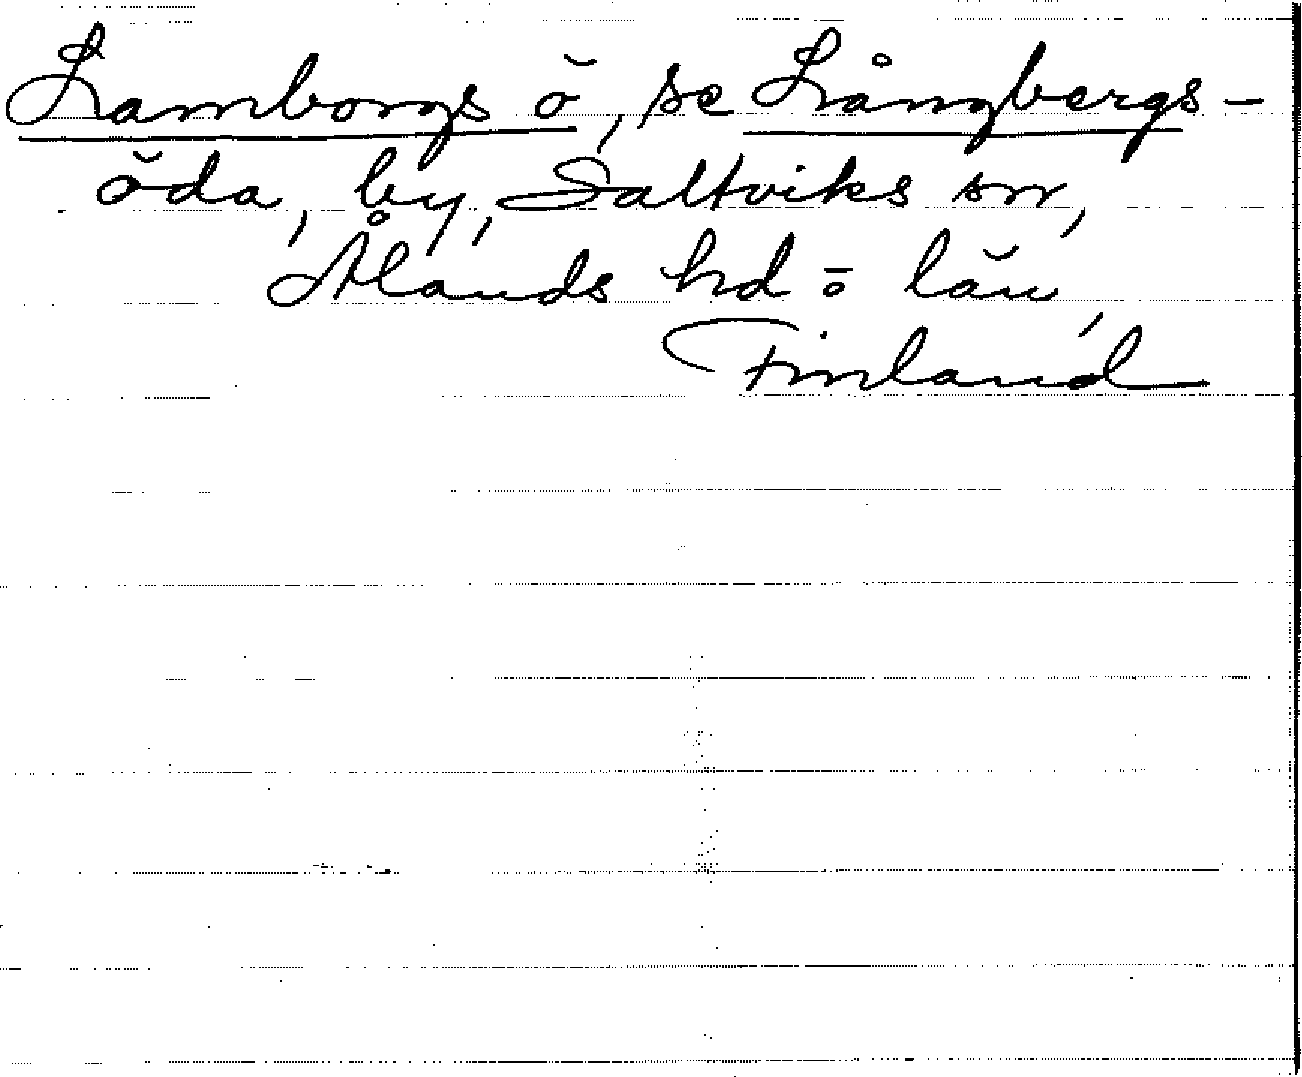 Lamborgs ö, se Långbergs-
öda, by, Saltviks sn,
Ålands hd o län,
Finland